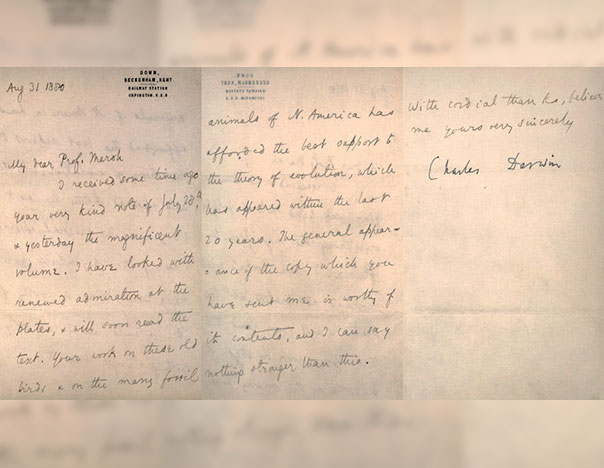 DOWN,
BECKENHAM, KENT.
RAILWAY STATION
ORPINGTON. S.E.R.
Aug 31 1880
My dear Prof. Marsh
I received some time ago
your very kind note of July 28th,
& yesterday the magnificent
volume. I have looked with
renewed admiration at the
Plates, & will soon read the
text. Your work on these old
birds & on the many fossil
animals of N. America has
afforded the best support to
the theory of evolution, which
has appeared within the last
20 years. The general appear-
ance of the copy which you
have sent me is worthy of
its contents, and I can say
nothing stronger than this.
With cordial thanks, believe
me yours very sincerely
Charles Darwin